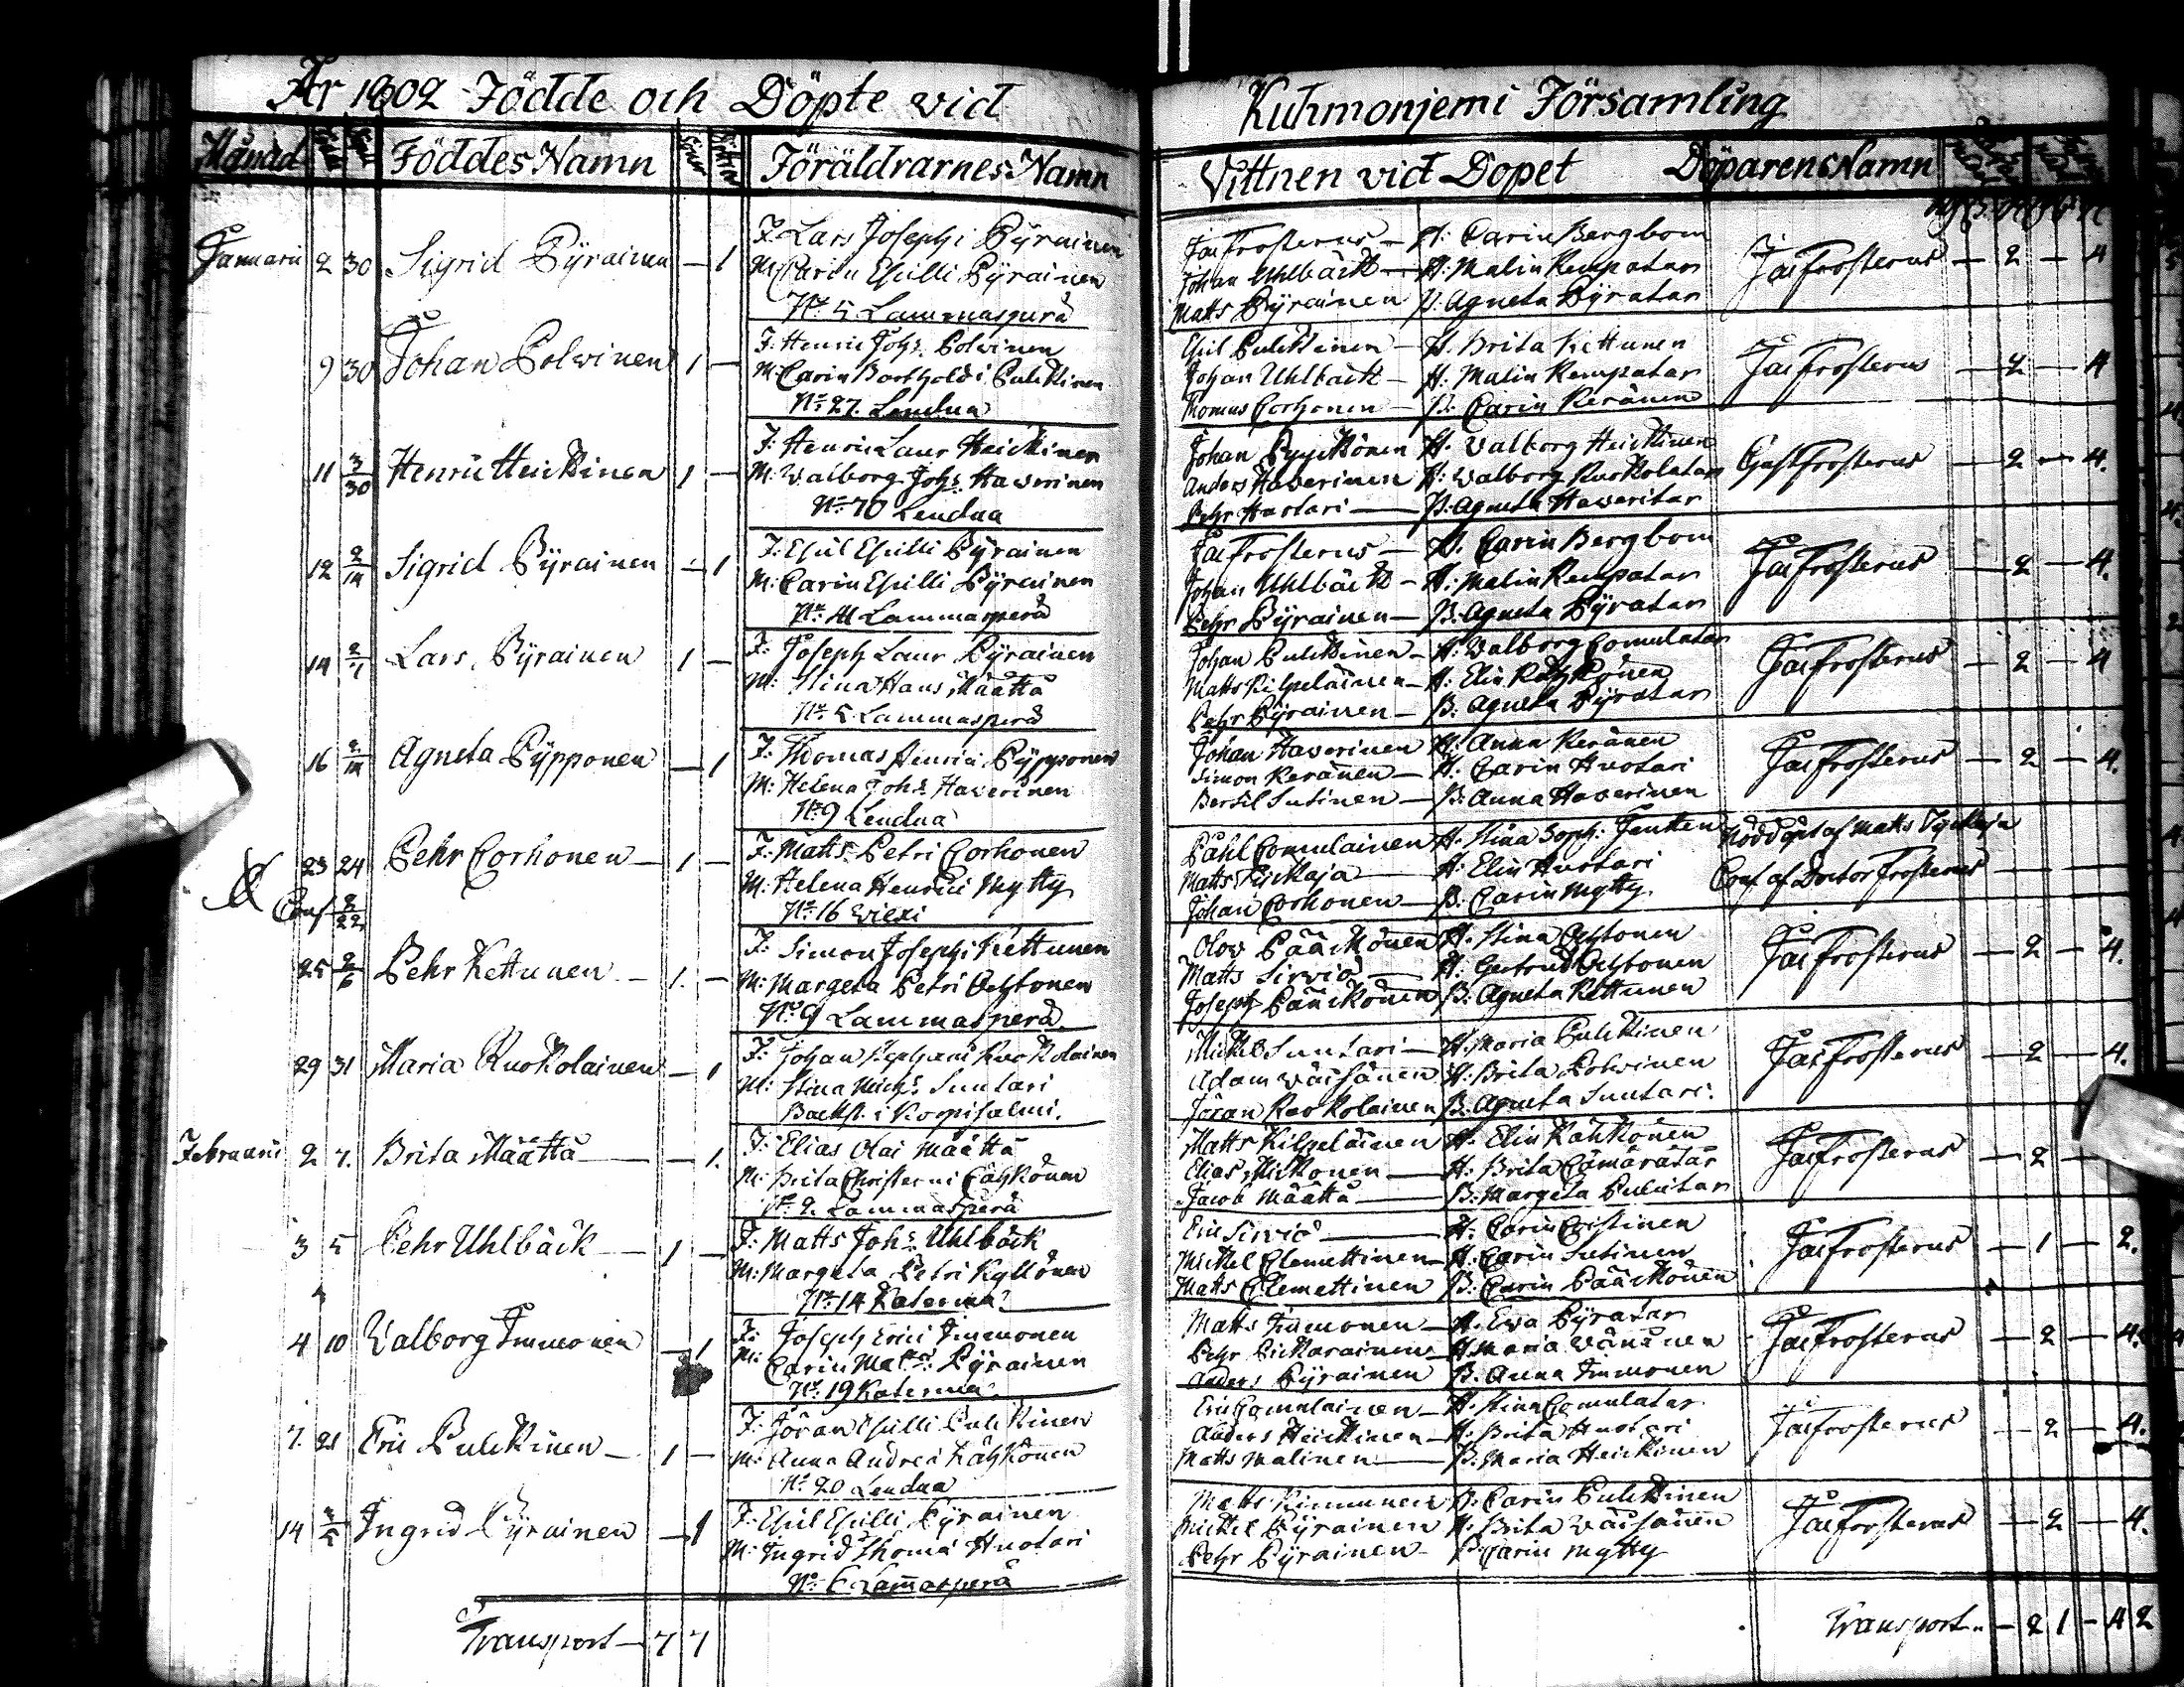 År 1802 Födde och Döpte vid Kuhmonjemi Församling
Månad Föddes Namn Föräldrarnes Namn Vittnen vid Dopet Döparens Namn
Januarii 2 30 Sigrid Pÿrainen — 1
F: Lars Josephi Pÿrainen
M: Carin Eskilli Pÿrainen
No 5 Lammasperä
Jac Frosterus — H: Carin Bergbom
Johan Uhlbäck — H: Malin Kempatar
Matts Pÿrainen P: Agneta Pÿratar
Jac Frosterus — 2 — 4
9 30 Johan Polvinen 1 —
F: Henric Johs Polvinen
M: Carin Bartholdi Pulkkinen
No 27. Lendua
Eskil Pulkkinen — H. Brita Kettunen
Johan Uhlbäck — H: Malin Kempatar
Thomas Corhonen — P: Carin Keränen
Jac Frosterus — 2 — 4
11 3/30 Henric Heickinen 1 —
F: Henric Laur Heickinen
M: Walborg Johs Haverinen
No 70 Lendua
Johan Pyyckönen H. Valborg Heickinen
Anders Haverinen H: Walborg Ruokolatar
Pehr Huotari — P: Agneta Haveritar
Gust Frosterus — 2 — 4.
12 2/14 Sigrid Pÿrainen — 1
F: Eskil Eskilli Pÿrainen
M: Carin Eskilli Pÿrainen
No 41 Lammasperä
Jac Frosterus — H. Carin Bergbom
Johan Uhlbäck — H: Malin Kempatar
Pehr Pÿrainen — P: Agneta Pÿratar
Jac Frosterus — 2 — 4.
14 2/7 Lars Pÿrainen 1 —
F: Joseph Laur Pÿrainen
M: Stina Hans Määttä
No 5 Lammasperä
Johan Pulkkinen — H: Walborg Comulatar
Matts Kilpeläinen — H: Elin Kähkönen
Pehr Pÿrainen — P: Agneta Pÿratar
Jac Frosterus — 2 — 4
16 2/14 Agneta Pÿpponen — 1
F: Thomas Henrici Pÿpponen
M: Helena Johs Haverinen
No 9 Lendua
Johan Haverinen H: Anna Keränen
Simon Keränen — H: Carin Huotari
Bertil Sutinen — P: Anna Haverinen
Jac Frosterus — 2 — 4.
23 24 Pehr Corhonen — 1 —
Conf 2/22
F: Matts Petri Corhonen
M: Helena Henrici Mytty
No 16 Wiexi
Påhl Comulainen H. Stina Soph: Fantten
Matts Tuckaja — H: Elin Huotari
Johan Corhonen — P: Carin Mytty.
Nöddöpt af Matts Tyckaja
Conf. af Doctor Frosterus — — —
25 2/6 Pehr Kettunen — 1. —
F: Simon Josephi Kettunen
M: Margeta Petri Ochtonen
No 9 Lammasperä
Olov Pääckönen H. Stina Ochtonen
Matts Sirviö — H: Gertrud Ochtonen
Joseph Pääckönen P: Agneta Kettunen
Jac Frosterus — 2 — 4.
29 31 Maria Ruokolainen — 1
F: Johan Stephani Ruokolainen
M: Stina Michs Suntari
Backst. i Korpisalmi.
Mickel Suntari — H: Maria Pulkkinen
Adam Väisänen H: Brita Polvinen
Jöran Ruokolainen P: Agneta Suntari.
Jac Frosterus — 2 — 4.
Februarii 2 7. Brita Määttä — — 1.
F: Elias Olai Määttä
M: Brita Christerni Cähkönen
No 2. Lammasperä
Matts Kilpeläinen H: Elin Kähkönen
Elias Mikkonen — H: Brita Cämärätär
Jacob Määttä — P: Margeta Pulkitar
Jac Frosterus — 2 —
3 5 Pehr Uhlbäck — 1 —
F: Matts Johs Uhlbäck
M: Margeta Petri Kyllönen
No 14 Katerma
Eric Sirviö — H: Carin Coistinen
Mickel Clemettinen — H: Carin Sutinen
Matts Clemettinen P: Carin Pääckönen
Jac Frosterus — 1 — 2.
4 10 Valborg Immonen — 1
F: Joseph Erici Immonen
M: Carin Matts Pÿrainen
No 19 Katerma
Matts Immonen — H. Eva Pÿratar
Pehr Pickarainen — H Maria Wänänen
Anders Pÿrainen P. Anna Immonen
Jac Frosterus — 2 — 4
7. 21 Eric Pulkkinen — 1 —
F: Jöran Eskilli Pulkkinen
M: Anna Andreæ Kähkönen
No 20 Lendua
Eric Comulainen — H. Stina Comulatar
Anders Heickinen — H. Brita Huotari
Matts Malinen — P: Maria Heickinen
Jac Frosterus — 2 — 4.
14 Ingrid Pÿrainen — 1
F: Eskil Eskilli Pÿrainen
M: Ingrid Thomæ Huotari
No 6 Lammasperä
Matts Kinnunen H. Carin Pulkkinen
Mickel Pÿrainen H: Brita Väisänen
Pehr Pÿrainen — P: Carin Mytty
Jac Frosterus — 2 — 4.
Transport — 7 7
Transport — 2 1 — 4 2